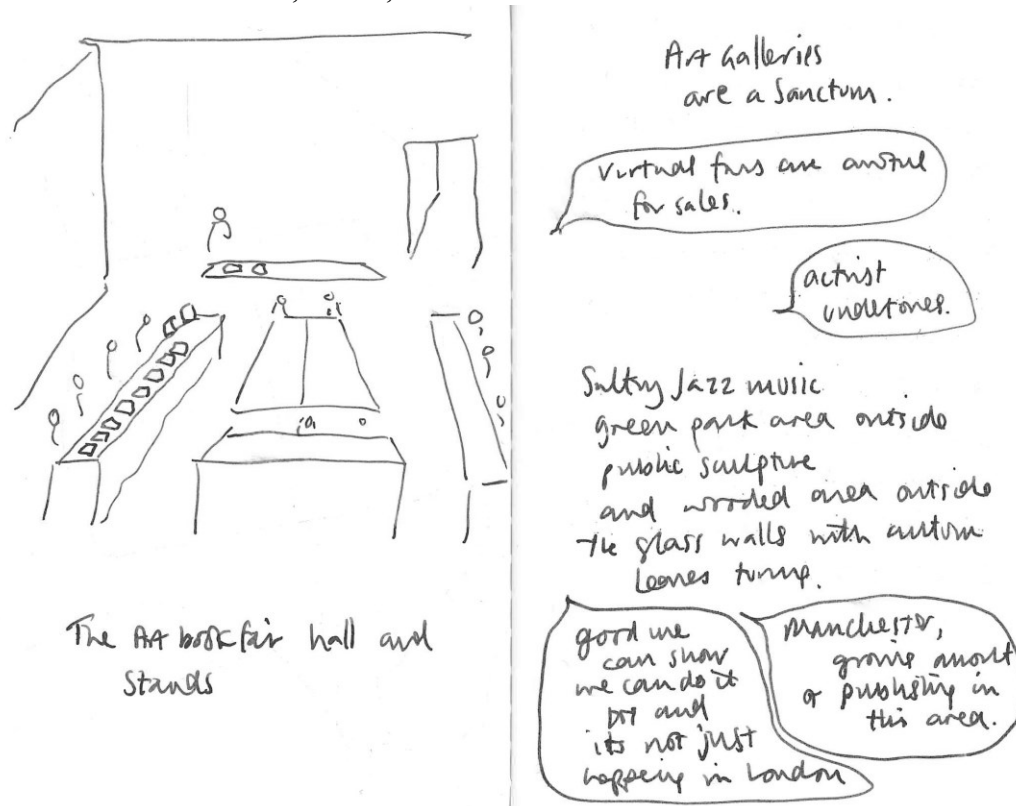 The Art book fair hall and
Stands
Art Galleries
are a Sanctum.
Virtual fairs are awful
for sales.
activist
undertones.
Sultry Jazz music
green park area outside
public sculpture
and wooded area outside
the glass walls with autumn
leaves turning.
good we
can show
we can do it
DIY and
its not just
happening in London
Manchester,
growing amount
of publishing in
this area.